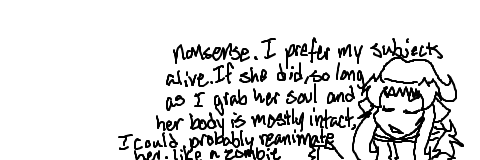 nonsense. I prefer my subjects
alive. If she did, so long
as I grab her soul and
her body is mostly intact,
I could probably reanimate
her. like a zombie